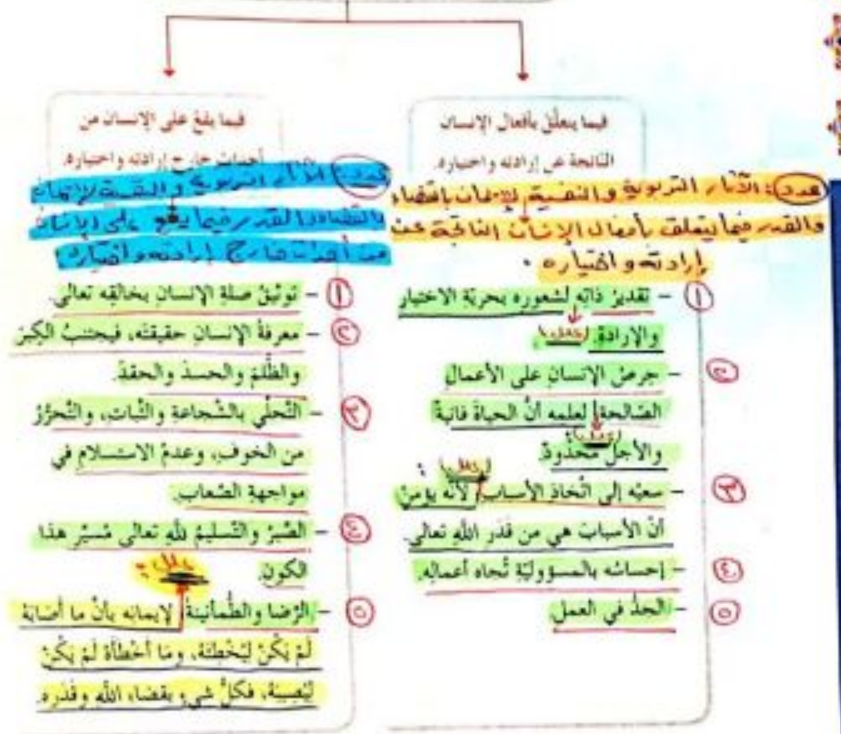 فيما يتعلّق بأفعال الإنسان
النّاتجة عن إرادته واختياره.
عدد: الآثار التربوية والنفسية للإيمان بالقضاء
والقدر فيما يتعلق بأفعال الإنسان الناتجة عن
إرادته واختياره.
١ - تقديرُ ذاتِه لشعوره بحريّة الاختيار
والإرادة. (علل)
٢ - حرصُ الإنسانِ على الأعمالِ
الصّالحة لعلمه أنّ الحياة فانيةٌ
(علل)
والأجل محدودٌ.
(علل)
٣ - سعيُه إلى اتّخاذ الأسباب، لأنّه يؤمنُ
أنّ الأسبابَ هي من قَدَر اللهِ تعالى.
٤ - إحساسُه بالمسؤوليّة تُجاه أعمالِه.
٥ - الجدُّ في العمل
فيما يقعُ على الإنسان من
أحداث خارج إرادته واختياره.
عدد: الآثار التربوية والنفسية للإيمان
بالقضاء والقدر فيما يقع على الإنسان
من أحداث خارج إرادته واختياره:
١ - توثيقُ صلةِ الإنسانِ بخالقِه تعالى.
٢ - معرفةُ الإنسانِ حقيقتَه، فيجتنبُ الكِبرَ
والظُّلمَ والحسدَ والحقدَ.
٣ - التّحلّي بالشّجاعةِ والثّباتِ، والتّحرّرُ
من الخوفِ، وعدمُ الاستسلامِ في
مواجهةِ الصّعاب.
٤ - الصّبرُ والتّسليمُ للهِ تعالى مُسيّرِ هذا
الكون.
علل:
٥ - الرّضا والطّمأنينةُ لإيمانِه بأنّ ما أصابَهُ
لَمْ يَكُنْ لِيُخْطِئَهُ، وَمَا أَخْطَأَهُ لَمْ يَكُنْ
لِيُصِيبَهُ، فكلُّ شيءٍ بقضاءِ اللهِ وقَدَرِه.